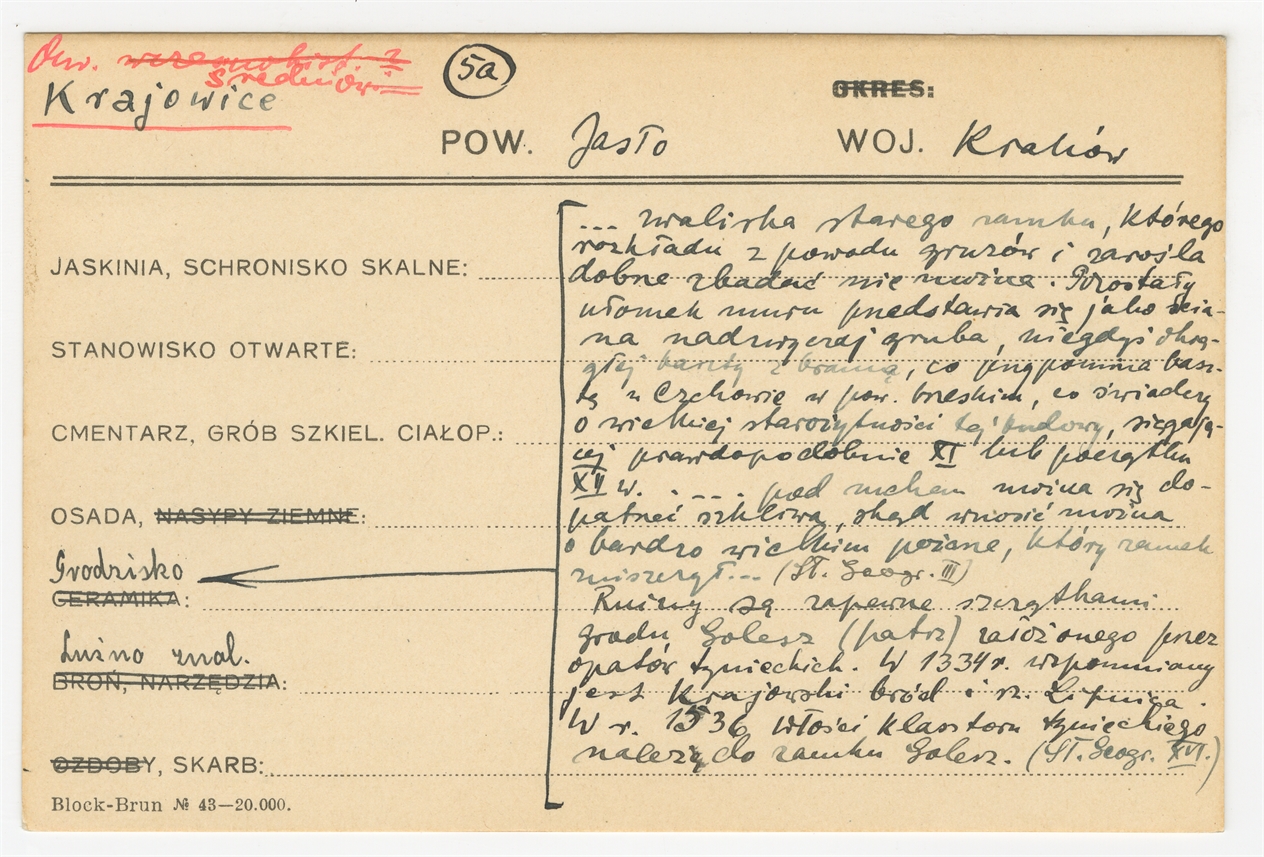 Okr. wczesnohist. ?
średniow.
Krajowice
5a
OKRES:
POW. Jasło
WOJ. Kraków
JASKINIA, SCHRONISKO SKALNE:
STANOWISKO OTWARTE:
CMENTARZ, GRÓB SZKIEL. CIAŁOP.:
OSADA, NASYPY ZIEMNE:
Grodzisko
CERAMIKA:
Luźno znal.
BROŃ, NARZĘDZIA:
OZDOBY, SKARB:
Block-Brun № 43—20.000.
... zwaliska starego zamku, którego
rozkładu z powodu gruzów i zarośla
dobrze zbadać nie można. Pozostały
ułomek muru przedstawia się jako ścia-
na nadzwyczaj gruba, niegdyś okrą-
głej baszty z bramą, co przypomina basz-
tę w Czchowie w pow. brzeskim, co świadczy
o wielkiej starożytności tej budowy, sięgają-
cej prawdopodobnie XI lub początku
XII w. . ... pod mchem można się do-
patrzeć szkliwa, skąd wnosić można
o bardzo wielkim pożarze, który zamek
zniszczył... (Sł. Geogr. III)
Ruiny są zapewne szczątkami
grodu Golesz (patrz) założonego przez
opatów tynieckich. W 1334 r. wspomniany
jest Krajowski bród i rz. Lipnica.
W r. 1536 włości klasztoru tynieckiego
należą do zamku Golesz. (Sł. Geogr. XVI.)